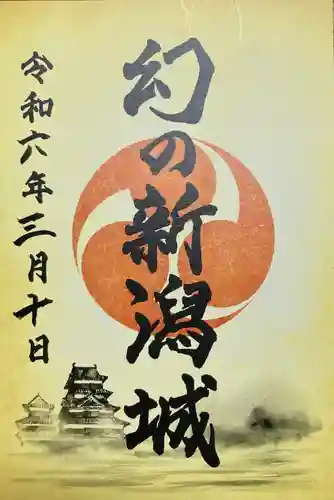 幻の新潟城
令和六年三月十日